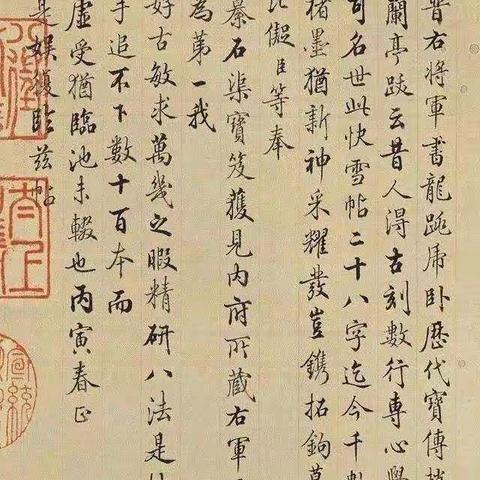 晉右將軍書龍跳虎卧歷代寶傳
蘭亭跋云昔人得古刻數行專心學
可名世此快雪帖二十八字迄今千
楮墨猶新神采耀發豈鐫拓鉤摹
比儗臣等奉
纂石渠寶笈獲見内府所藏右軍
為第一我
好古敏求萬幾之暇精研八法是
手追不下數十百本而
虛受猶臨池未輟也丙寅春正
是娛復臨茲帖